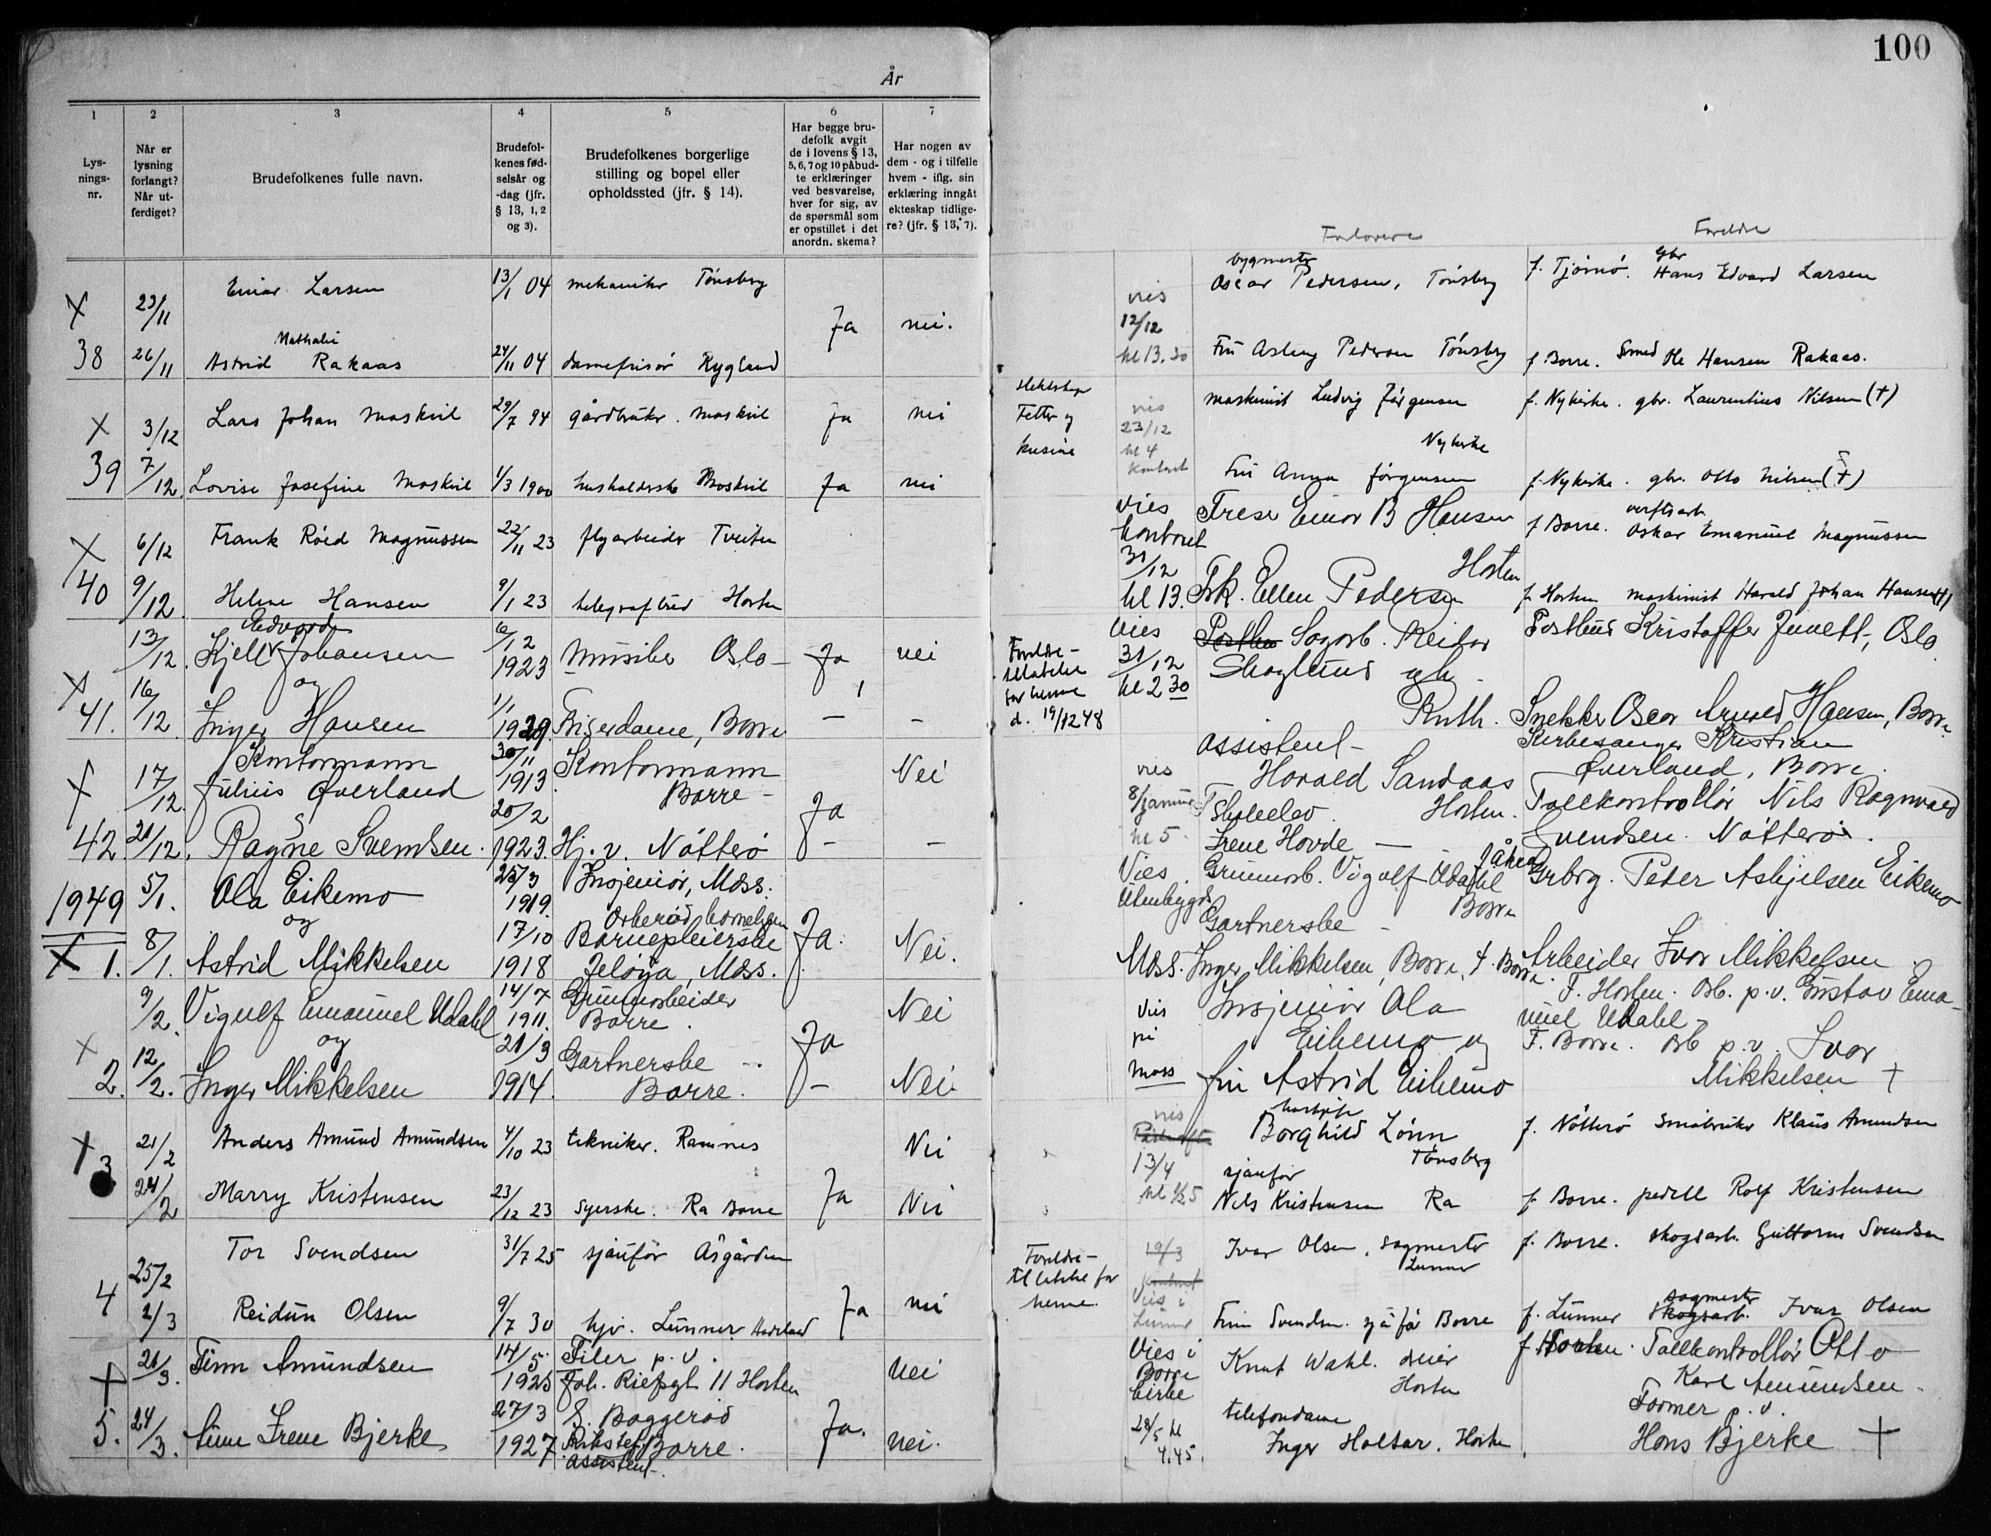 100
År
1
2
3
4
5
6
7
Lys-
nings-
nr.
Når er
lysning
forlangt?
Når ut-
ferdiget?
Brudefolkenes fulle navn.
Brudefol-
kenes fød-
selsår og
-dag (jfr.
§ 13, 1, 2
og 3).
Brudefolkenes borgerlige
stilling og bopel eller
opholdssted (jfr. § 14).
Har begge bru-
defolk avgit
de i lovens § 13,
5, 6, 7 og 10 påbud-
te erklæringer
ved besvarelse,
hver for sig, av
de spørsmål som
er opstillet i det
anordn. skema?
Har nogen av
dem - og i tilfelle
hvem - iflg. sin
erklæring inngåt
ekteskap tidlige-
re? (jfr. § 13, 7).
Forlovere
Foreldre
X 38
23/11
26/11
Einar Larsen
13/1 04
mekaniker Tönsberg
Ja
nei.
vies
12/12
kl 13.30
bygmester
Oscar Pedersen, Tönsberg
f. Tjömö. Gbr Hans Edvard Larsen
Nathalie
Astrid Rakaas
24/11 04
damefrisör Nygland
Fru Aslaug Pedersen Tönsberg
f Borre. Smed Ole Hansen Rakaas.
X 39
3/12
7/12
Lars Johan Moskvil
29/7 94
gårdbruker. Moskvil
Ja
nei
Fetter og
kusine
vies
23/12
kl 4
kontoret
maskinist Ludvig Jörgensen
Nykirke
f. Nykirke. gbr. Laurentius Nilsen (+)
Lovise Josefine Moskvil
4/3 1900
husholderske Moskvil
Ja
nei
Fru Anna Jörgensen
f. Nykirke. gbr. Otto Nilsen (+)
X 40
6/12
9/12
Frank Röed Magnussen
22/11 23
flyarbeider Tveiten
vies
kontoret
31/12
kl 13.
Freser Einar B Hansen
Horten
f Borre. verftsarb.
Oskar Emanuel Magnussen
Helene Hansen
9/1 23
telegrafbud Horten
Frk. Ellen Pedersen
f Horten maskinist Harald Johan Hansen (+)
X 41.
13/12
16/12
Edvard
Kjell Johansen
og
6/12
1923
Musiker Oslo -
Ja,
nei
Foreldre-
tillatelse
for henne
d. 19/12 48
Vies
31/12
kl 2 30
Sagarb. Reidar
Skoglund og h.
Ruth.
Postbud Kristoffer Junett, Oslo
Inger Hansen
1/1
1929.
Friserdame, Borre
-
-
Snekker Oscar Arnold Hansen, Borre
X 42
17/12
21/12.
Kontormann
Julius Øverland
30/11
1913
Kontormann
Borre -
Ja
Nei
vies
8/januar
kl 5.
assistent -
Harald Sandaas
Horten.
Kirkesanger Kristian
Øverland, Borre.
Ragne Svendsen.
20/2
1923.
Hj. v. Nötterö
-
-
Skoleelev.
Irene Hovde -
Tollkontrollör Nils Ragnvald
Svendsen. Nötterö.
1949
X 1.
5/1.
8/1.
Ola Eikemo
og
25/3
1919.
Ingeniör, Moss.
Ja.
Nei.
Vies
utenbygds
Moss.
Grunnarb. Vigulf Udahl
Borre
Grbrg. Peder Asbjelsen Eikemo
Astrid Mikkelsen
17/10
1918
Orkeröd barnehjem
Barnepleierske
Jelöya, Moss.
Gartnerske -
Inger Mikkelsen, Borre, f. Borre.
Arbeider Ivar Mikkelsen.
X 2.
9/2.
12/2.
Vigulf Emanuel Udahl
og
14/7
1911.
Grunnarbeider
Borre.
Ja
Nei
Vies
på
Moss
Ingeniör Ola
Eikemo og
F. Horten. Arb. p.v. Gustav Ema-
nuel Udahl -
Inger Mikkelsen
21/3
1914.
Gartnerske -
Borre.
-
Nei
fru Astrid Eikemo
F. Borre. Arb p.v. Ivar
Mikkelsen +
X 3
21/2
24/2
Anders Amund Amundsen
4/10 23
tekniker. Ramnes
Ja
Nei
vies
13/4
kl 1/2 5
Borghild Lönn
Tönsberg
f. Nötterö Småbruker Klaus Amundsen
Marry Kristensen
23/12 23
Syerske. Ra Borre
Nei
sjåuför
Nils Kristensen Ra
f Borre. pedell Rolf Kristensen
4
25/2
2/3
Tor Svendsen
31/7 25
sjåuför Åsgården
Ja
nei
Foreldre-
tillatelse for
henne.
19/3
kontoret
Vies i
Lunner
Ivar Olsen, sagmester
Lunner
f. Borre. skogsarb. Guttorm Svendsen
Reidun Olsen
9/7 30
hjv. Lunner Hadeland
Finn Svendsen. sjåför Borre
f. Lunner sagmester
skogsarb. Ivar Olsen
X 5.
21/3.
24/3.
Finn Amundsen
14/5
1925
Filer p.v.
Joh. Riefsgt 11 Horten
Ja.
nei
Vies i
Borre
kirke
28/5 kl
4.45.
Knut Wahl. dreier
Horten
f Horten. Tollkontrollör Otto
Karl Amundsen.
Irene Bjerke
27/3
1927.
S. Baggeröd
Rikstel. Borre.
Assistent -
nei.
telefondame
Inger Holtar. Horten
Former p.v.
Hans Bjerke +